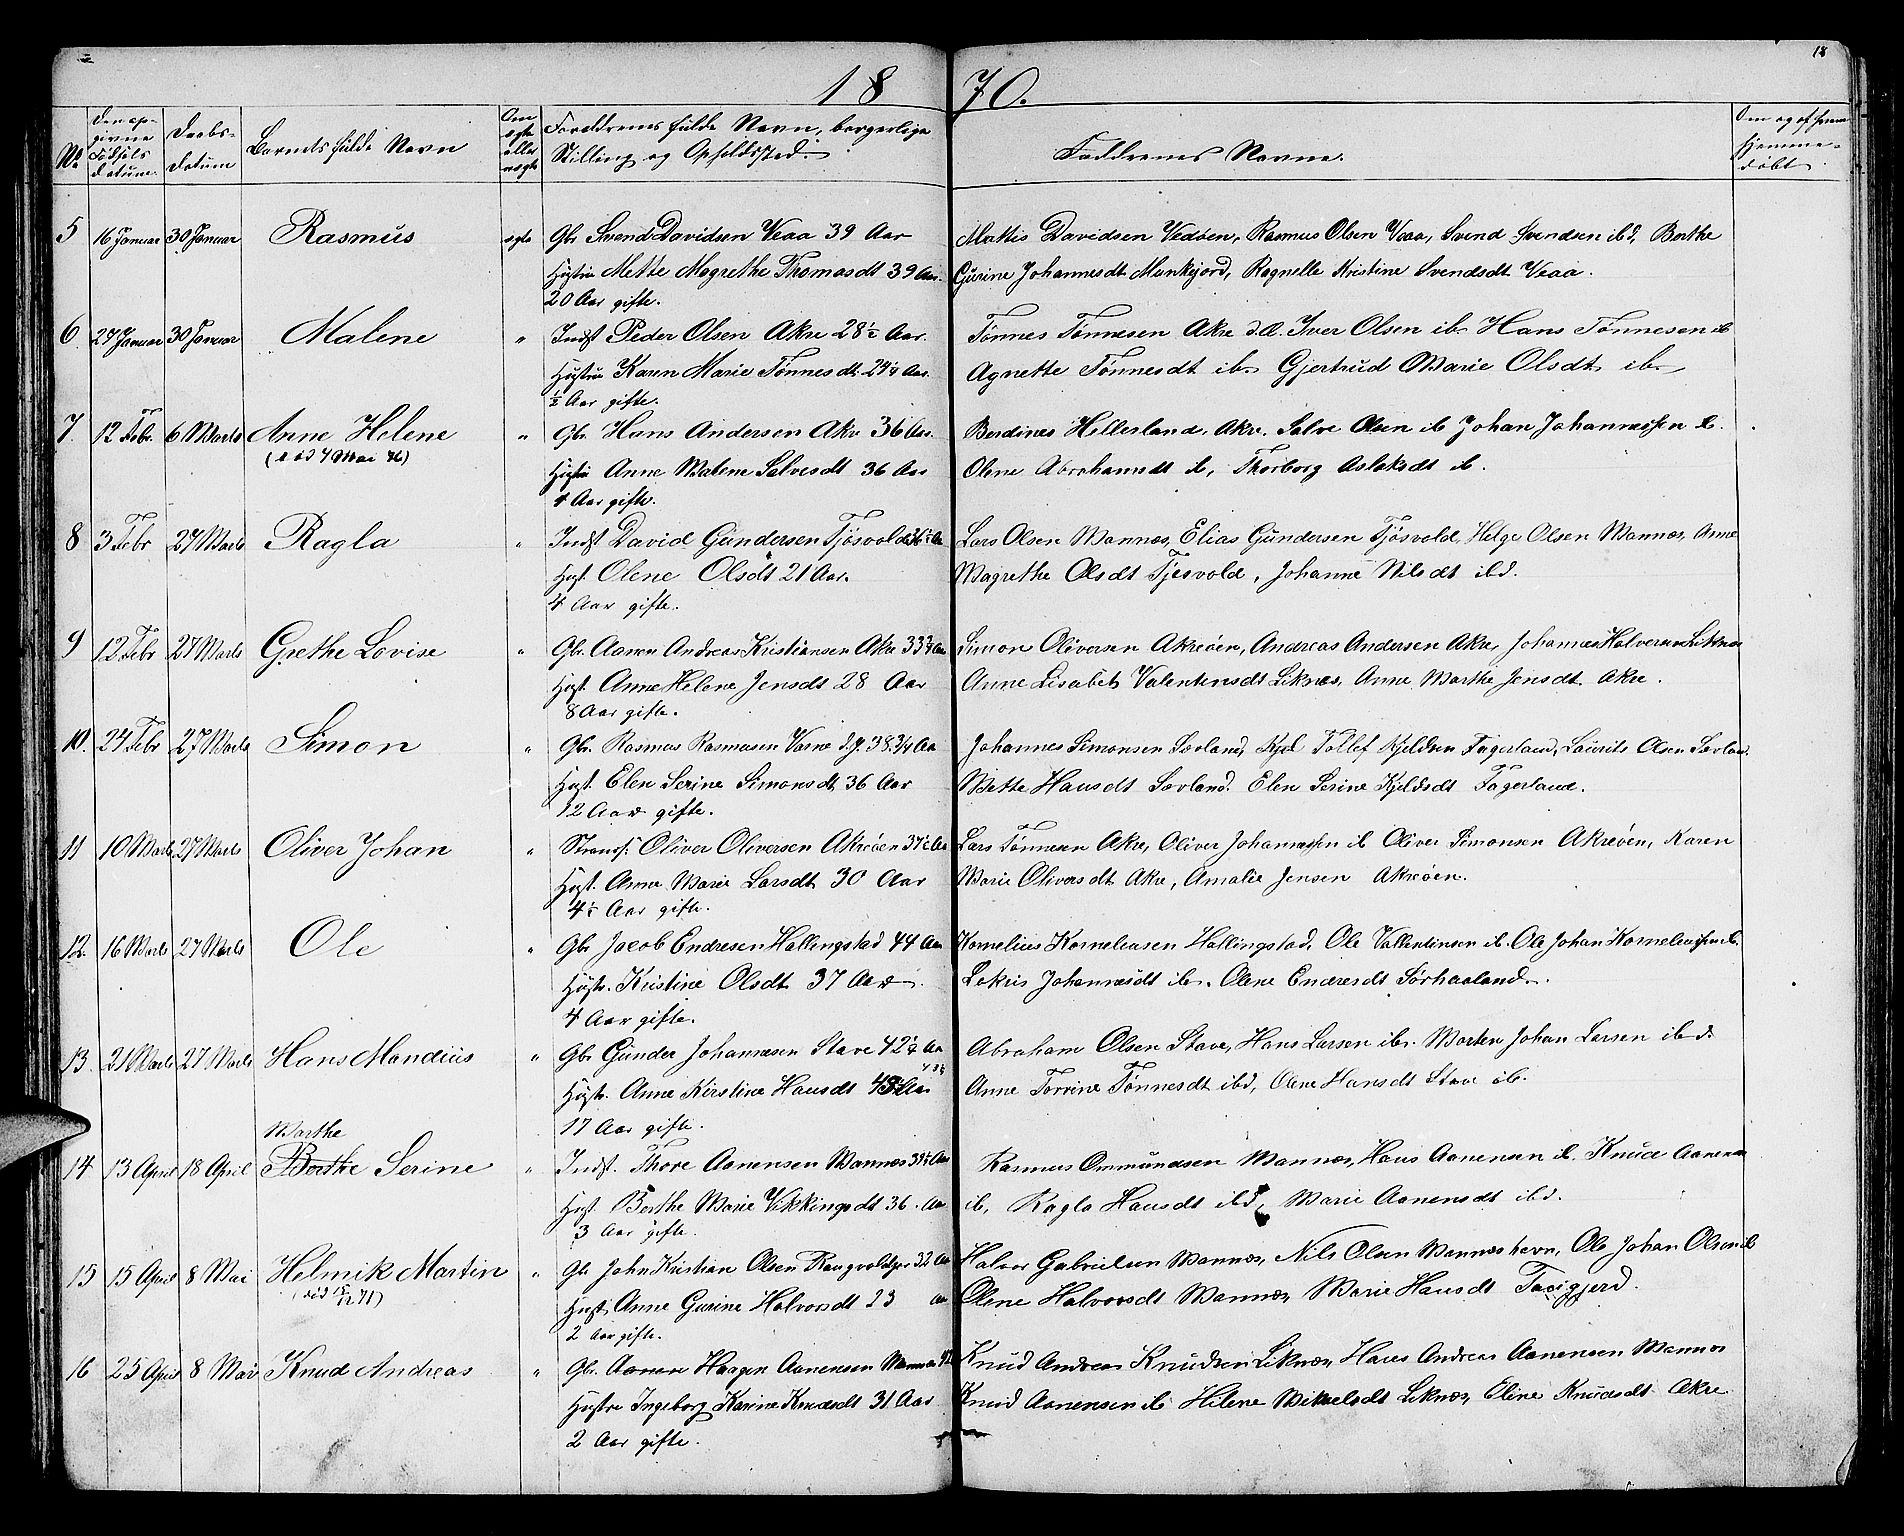 18
18 70.
No
Den op-
givne
Fødsels
datum.
Daabs-
datum
Barnets fulde Navn
Om
ægte
eller
uægte
Forældrenes fulde Navn, borgerlige
Stilling og Opholdssted.
Faddrenes Navne.
Hjemme-
døbt
5 16 Januar 30 Januar Rasmus ægte Gbr. Svend Davidsen Veaa 39 Aar Mattis Davidsen Vedøen, Rasmus Olsen Veaa, Svend Svendsen ibd, Berthe
Hustru Mette Magrethe Thomasdt 39 Aar. Gurine Johannesdt Munkejord, Ragnelle Kristine Svendsdt Veaa.
20 Aar gifte.
6 27 Januar 30 Januar Malene " Indst Peder Olsen Akre 28½ Aar. Tønnes Tønnesen Akre d.æ. Iver Olsen ib. Hans Tønnesen ib
Hustru Karen Marie Tønnesdt 24¼ Aar. Agnette Tønnesdt ib. Gjertrud Marie Olsdt ib.
½ Aar gifte.
7. 12 Febr. 6 Marts Anne Helene " Gbr. Hans Andersen Akre 36 Aar. Berdines Hellesland, Akre. Salve Olsen ib Johan Johannessen ib.
(død 7 Mai 76) Hustru Anne Malene Salvesdt 36 Aar Olene Abrahamsdt ib, Thorborg Aslaksdt ib.
4 Aar gifte.
8 3 Febr 27 Marts Ragla " Indst David Gundersen Tjøsvold Lars Olsen Mannes, Elias Gundersen Tjøsvold, Helge Olsen Mannes, Anne
Hust. Olene Olsdt 21 Aar. Magrethe Olsdt Tjøsvold, Johanne Nilsdt ibd.
4 Aar gifte.
9 12 Febr 27 Marts Grethe Lovise " Gbr. Aanen Andreas Kristiansen Akre 33¾ Aar Simon Oliversen Akreøen, Andreas Andersen Akre, Johannes Halvorsen Liknes
Hust. Anne Helene Jensdt 28 Aar Anne Lisabet Valentinsdt Liknes, Anne Marthe Jensdt Akre.
8 Aar gifte.
10. 24 Febr 27 Marts Simon " Gbr. Rasmus Rasmusen Varne d.y. 38¾ Aa Johannes Simonsen Sævland, Kjel Tollef Kjeldsen Fagerland, Laurits Olsen Sævland.
Hust. Elen Serine Simonsdt 36 Aar Mette Hansdt Sævland. Elen Serine Kjeldsdt Fagerland.
12 Aar gifte.
11 10 Marts 27 Marts Oliver Johan " Strands. Oliver Oliversen Akreøen 37½ Aa Lars Tønnesen Akre, Oliver Johannessen ib Oliver Simonsen Akreøen, Karen
Hust. Anne Marie Larsdt 30 Aar Marie Oliversdt Akre, Amalie Jensen Akreøen.
4½ Aar gifte.
12. 16 Marts 27 Marts Ole " Gbr. Jacob Endresen Hallingstad 44 Aar Kornelius Korneliusen Hallingstad, Ole Vallentinsen ib. Ole Johan Korneliussen ib.
Hustr. Kristine Olsdt 37 Aar Lokris Johannesdt ib. Olene Endresdt Sørhaaland.
4 Aar gifte.
13. 21 Marts 27 Marts Hans Mandius " Gbr Gunder Johannesen Stave 42¼ Aa Abraham Olsen Stave, Hans Larsen ib. Morten Johan Larsen ibd.
Hustr. Anne Kirstine Hansdt 43 Aar Anne Torrine Tønnesdt ibd, Olene Hansdt Stave ib.
17 Aar gifte.
Marthe
14 13 April 18 April Berthe Serine " Indst. Thore Aanensen Mannes 39½ Aar Rasmus Ommundsen Mannes, Hans Aanensen ib. Knud Aanensen
Hust. Berthe Marie Vikkingsdt 36. Aar ib, Ragla Hansdt ibd, Marie Aanensdt ibd.
3 Aar gifte.
15 15 April 8 Mai Helmik Martin " Gbr John Kristian Olsen Rangvoldgjer 32 Aar Halvor Gabrielsen Mannes, Nils Olsen Mannes havn, Ole Johan Olsen ib
Hust. Anne Gurine Halvorsdt 23 Aar Olene Halvorsdt Mannes, Marie Hansdt
2 Aar gifte.
16 25 April 8 Mai Knud Andreas " Gbr. Aanen Haagen Aanensen Mannes Knud Andreas Knudsen Liknes, Hans Andreas Aanensen Mannes
Hustru Ingeborg Karine Knudsdt 31 Aar Knud Aanensen ib Helene Mikkelsdt Liknes, Eline Knudsdt Akre
2 Aar gifte.